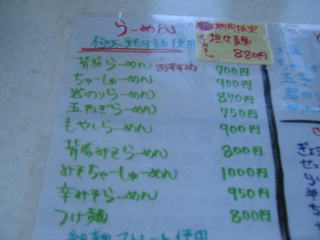 らーめん
極太ちぢれ麺使用
期間限定
坦々麺
880円
背脂らーめん おすすめ 700円
ちゃーしゅーめん 900円
岩のりらーめん 870円
玉ねぎらーめん 750円
もやしらーめん 900円
背脂みそらーめん 800円
みそちゃーしゅーめん 1000円
辛みそらーめん 950円
つけ麺 800円
細麺ストレート使用